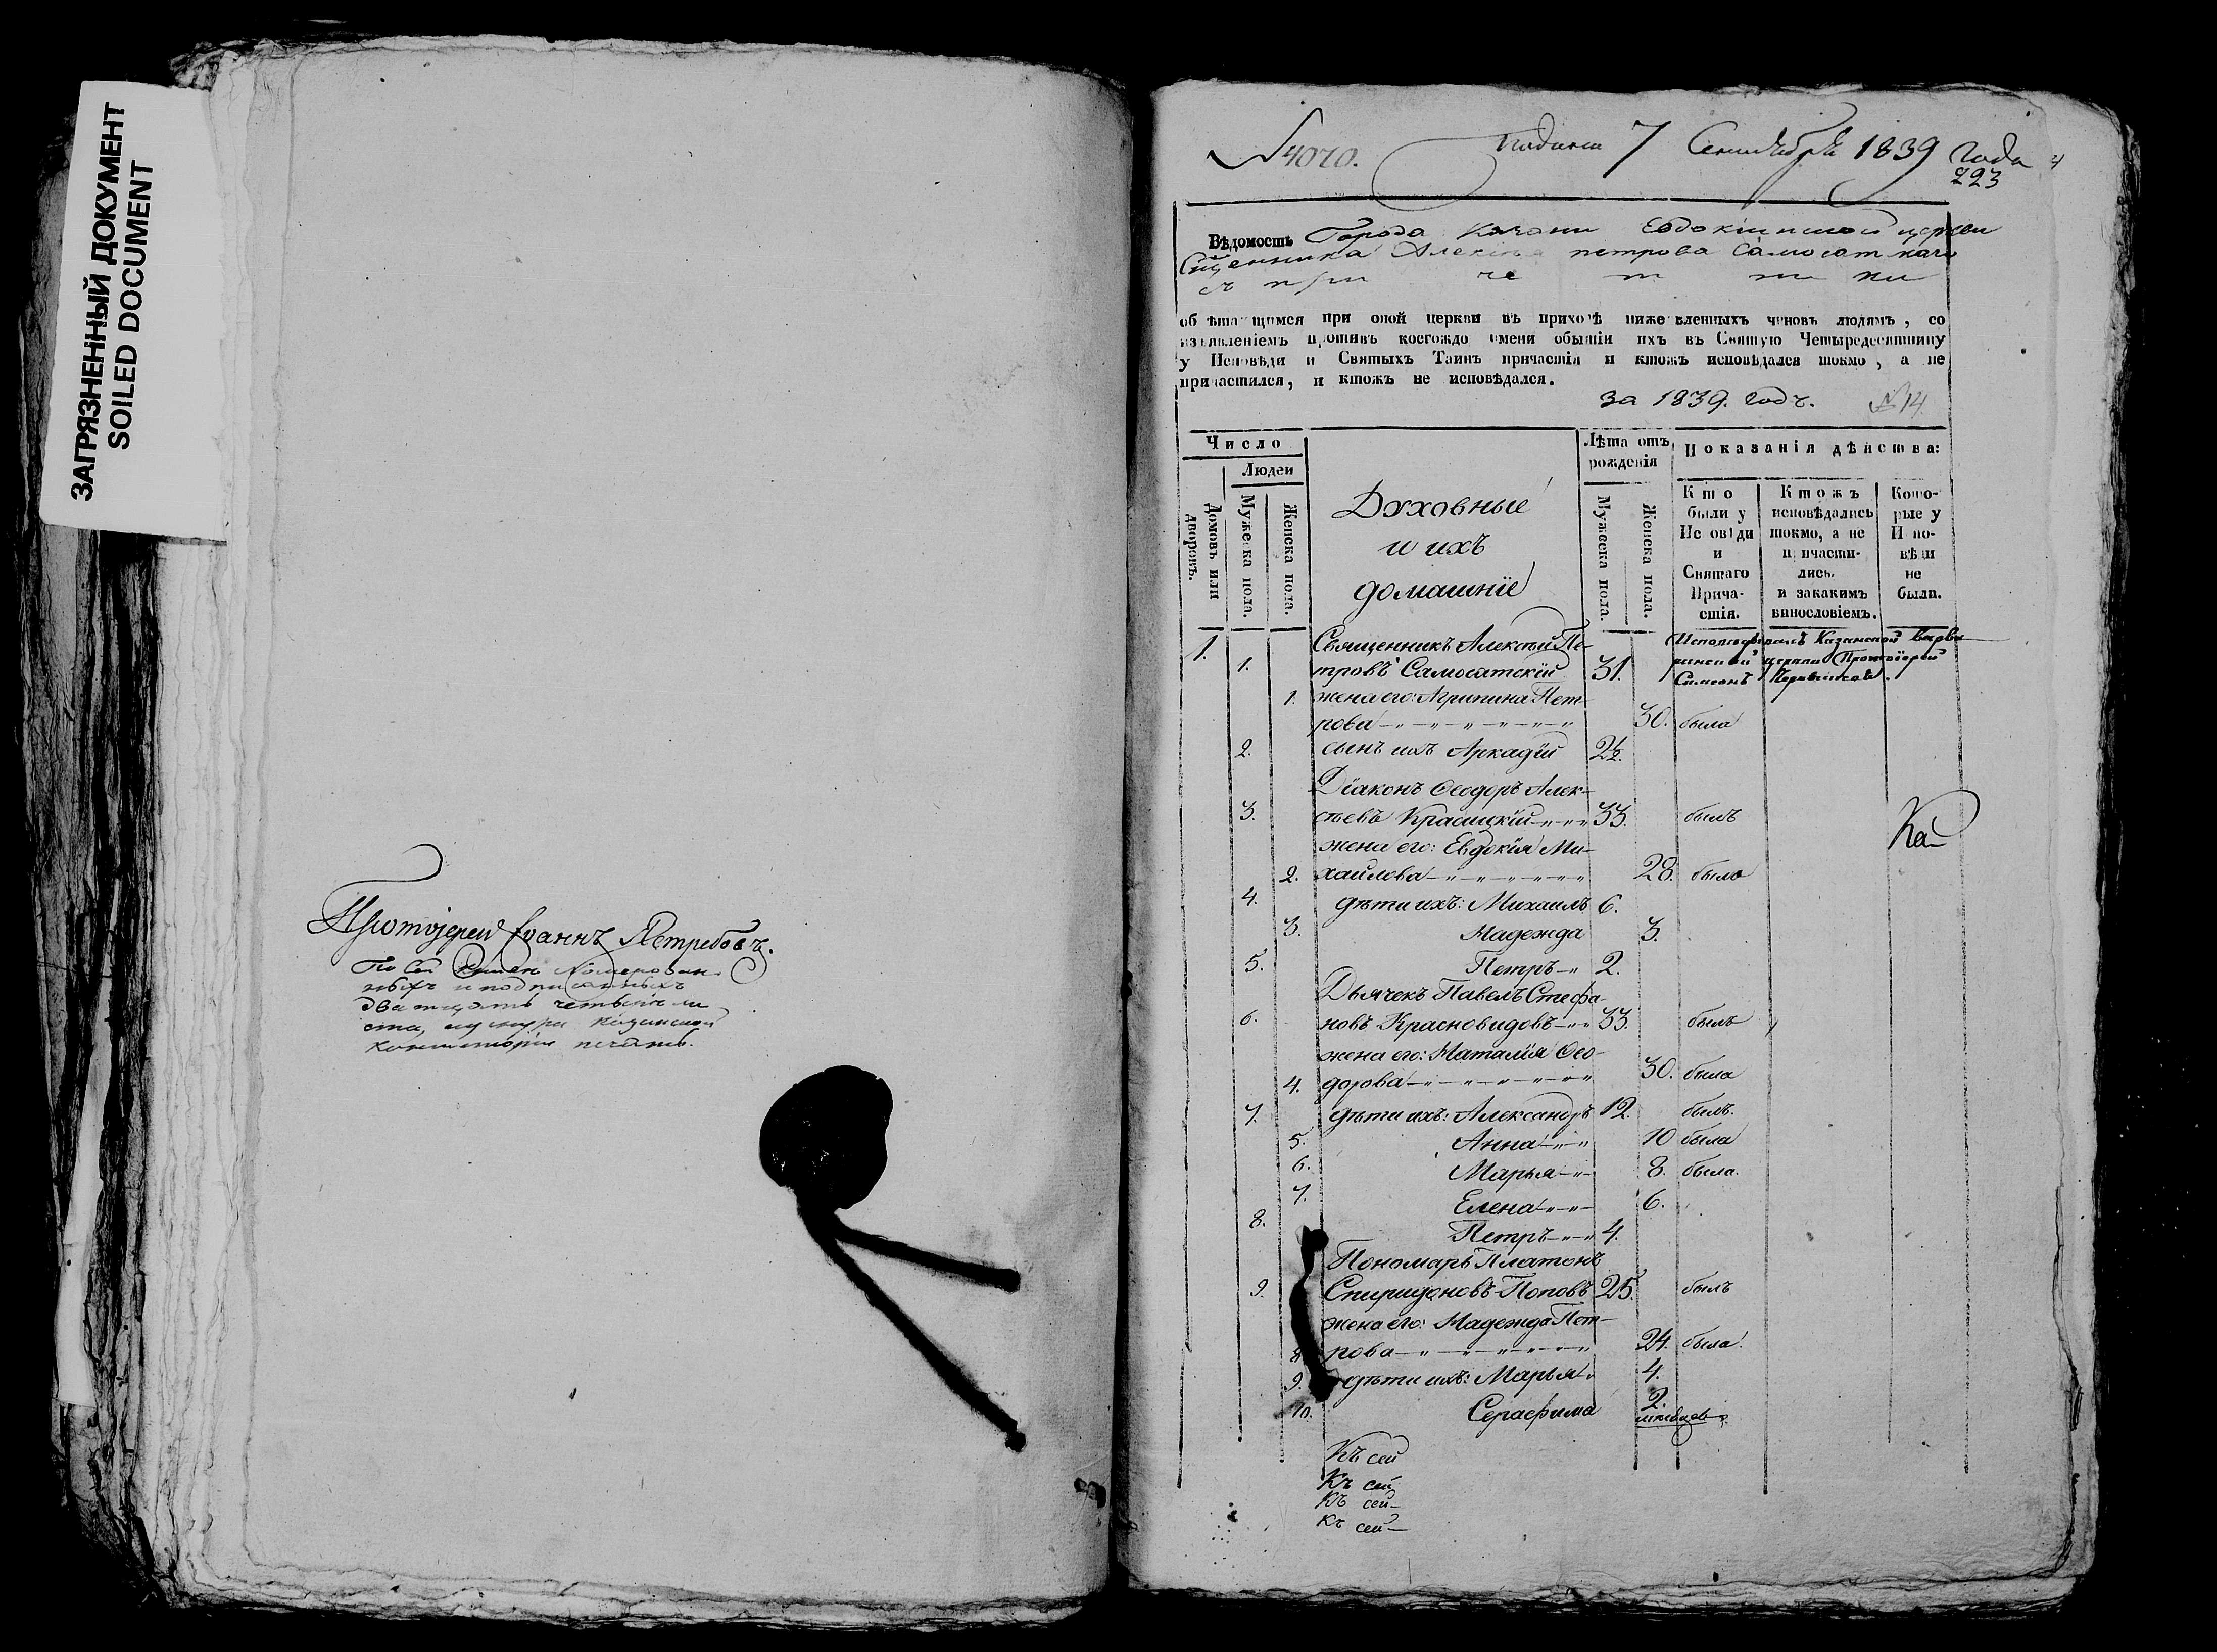 ЗАГРЯЗНЕННЫЙ ДОКУМЕНТ
SOILED DOCUMENT
Протоjереи Iоаннъ Ястребовъ.
По сей
ныхъ и подписанныхъ
двадцать четыре ли
ста, Казанской
Консисторiи печать.
№ 4070.
Подана 7 Сентября 1839 года
223
Вѣдомость Города Казани Евдокiинской церкви
Сщенника Алексѣя петрова Самосатскаго
съ при че т т ки
обрѣтающимся при оной церкви въ приходѣ нижеявленныхъ чиновъ людямъ, со
изъявленiемъ противъ коегождо имени бытiи ихъ въ Святую Четыредесятницу
у Исповѣди и Святыхъ Таинъ причастiя и ктожъ исповѣдался токмо, а не
причастился, и ктожъ не исповѣдался.
за 1839. годъ. №14
Число
Людей
Домовъ или дворовъ.
Мужеска пола.
Женска пола.
Духовные
и ихъ
домашнiе
Лѣта отъ
рожденiя
Мужеска пола.
Женска пола.
Показанiя дѣйства:
Кто
были у
Исповѣди
и
Святаго
Прича-
стiя.
Ктожъ
исповѣдались
токмо, а не
причасти-
лись.
и закакимъ
винословiемъ.
Кото-
рые у
Испо-
вѣди
не
были.
1. Священникъ Алексѣй Пе-
1. тровъ Самосатскiй 31.
Исповѣдывалъ Казанской Варва
ринской церкви Протоiерей
Симеонъ
1. жена его: Агрипина Пет-
рова 30. была
2. сынъ ихъ Аркадiй 2½.
Дiаконъ Ѳеодоръ Алек-
3. сѣевъ Красицкiй 33. былъ
Ка-
жена его: Евдокiя Ми-
2. хайлова 28. была
4. дѣти ихъ: Михаилъ 6.
3. Надежда 3.
5. Петръ 2.
Дьячекъ Павелъ Стефа-
6. новъ Красновидовъ 33. былъ
жена его: Наталiя Ѳео-
4. дорова 30. была
7. дѣти ихъ: Александръ 12. былъ.
5. Анна 10 была
6. Марья 8. была.
7. Елена 6.
8. Петръ 4.
Пономарь Платонъ
9. Спиридоновъ Поповъ 25. былъ
жена его: Надежда Пет-
8 рова 24. была.
9. дѣти ихъ: Марья 4.
10. Серафима 2.
Къ сей
Къ сей
Къ сей-
Къ сей-